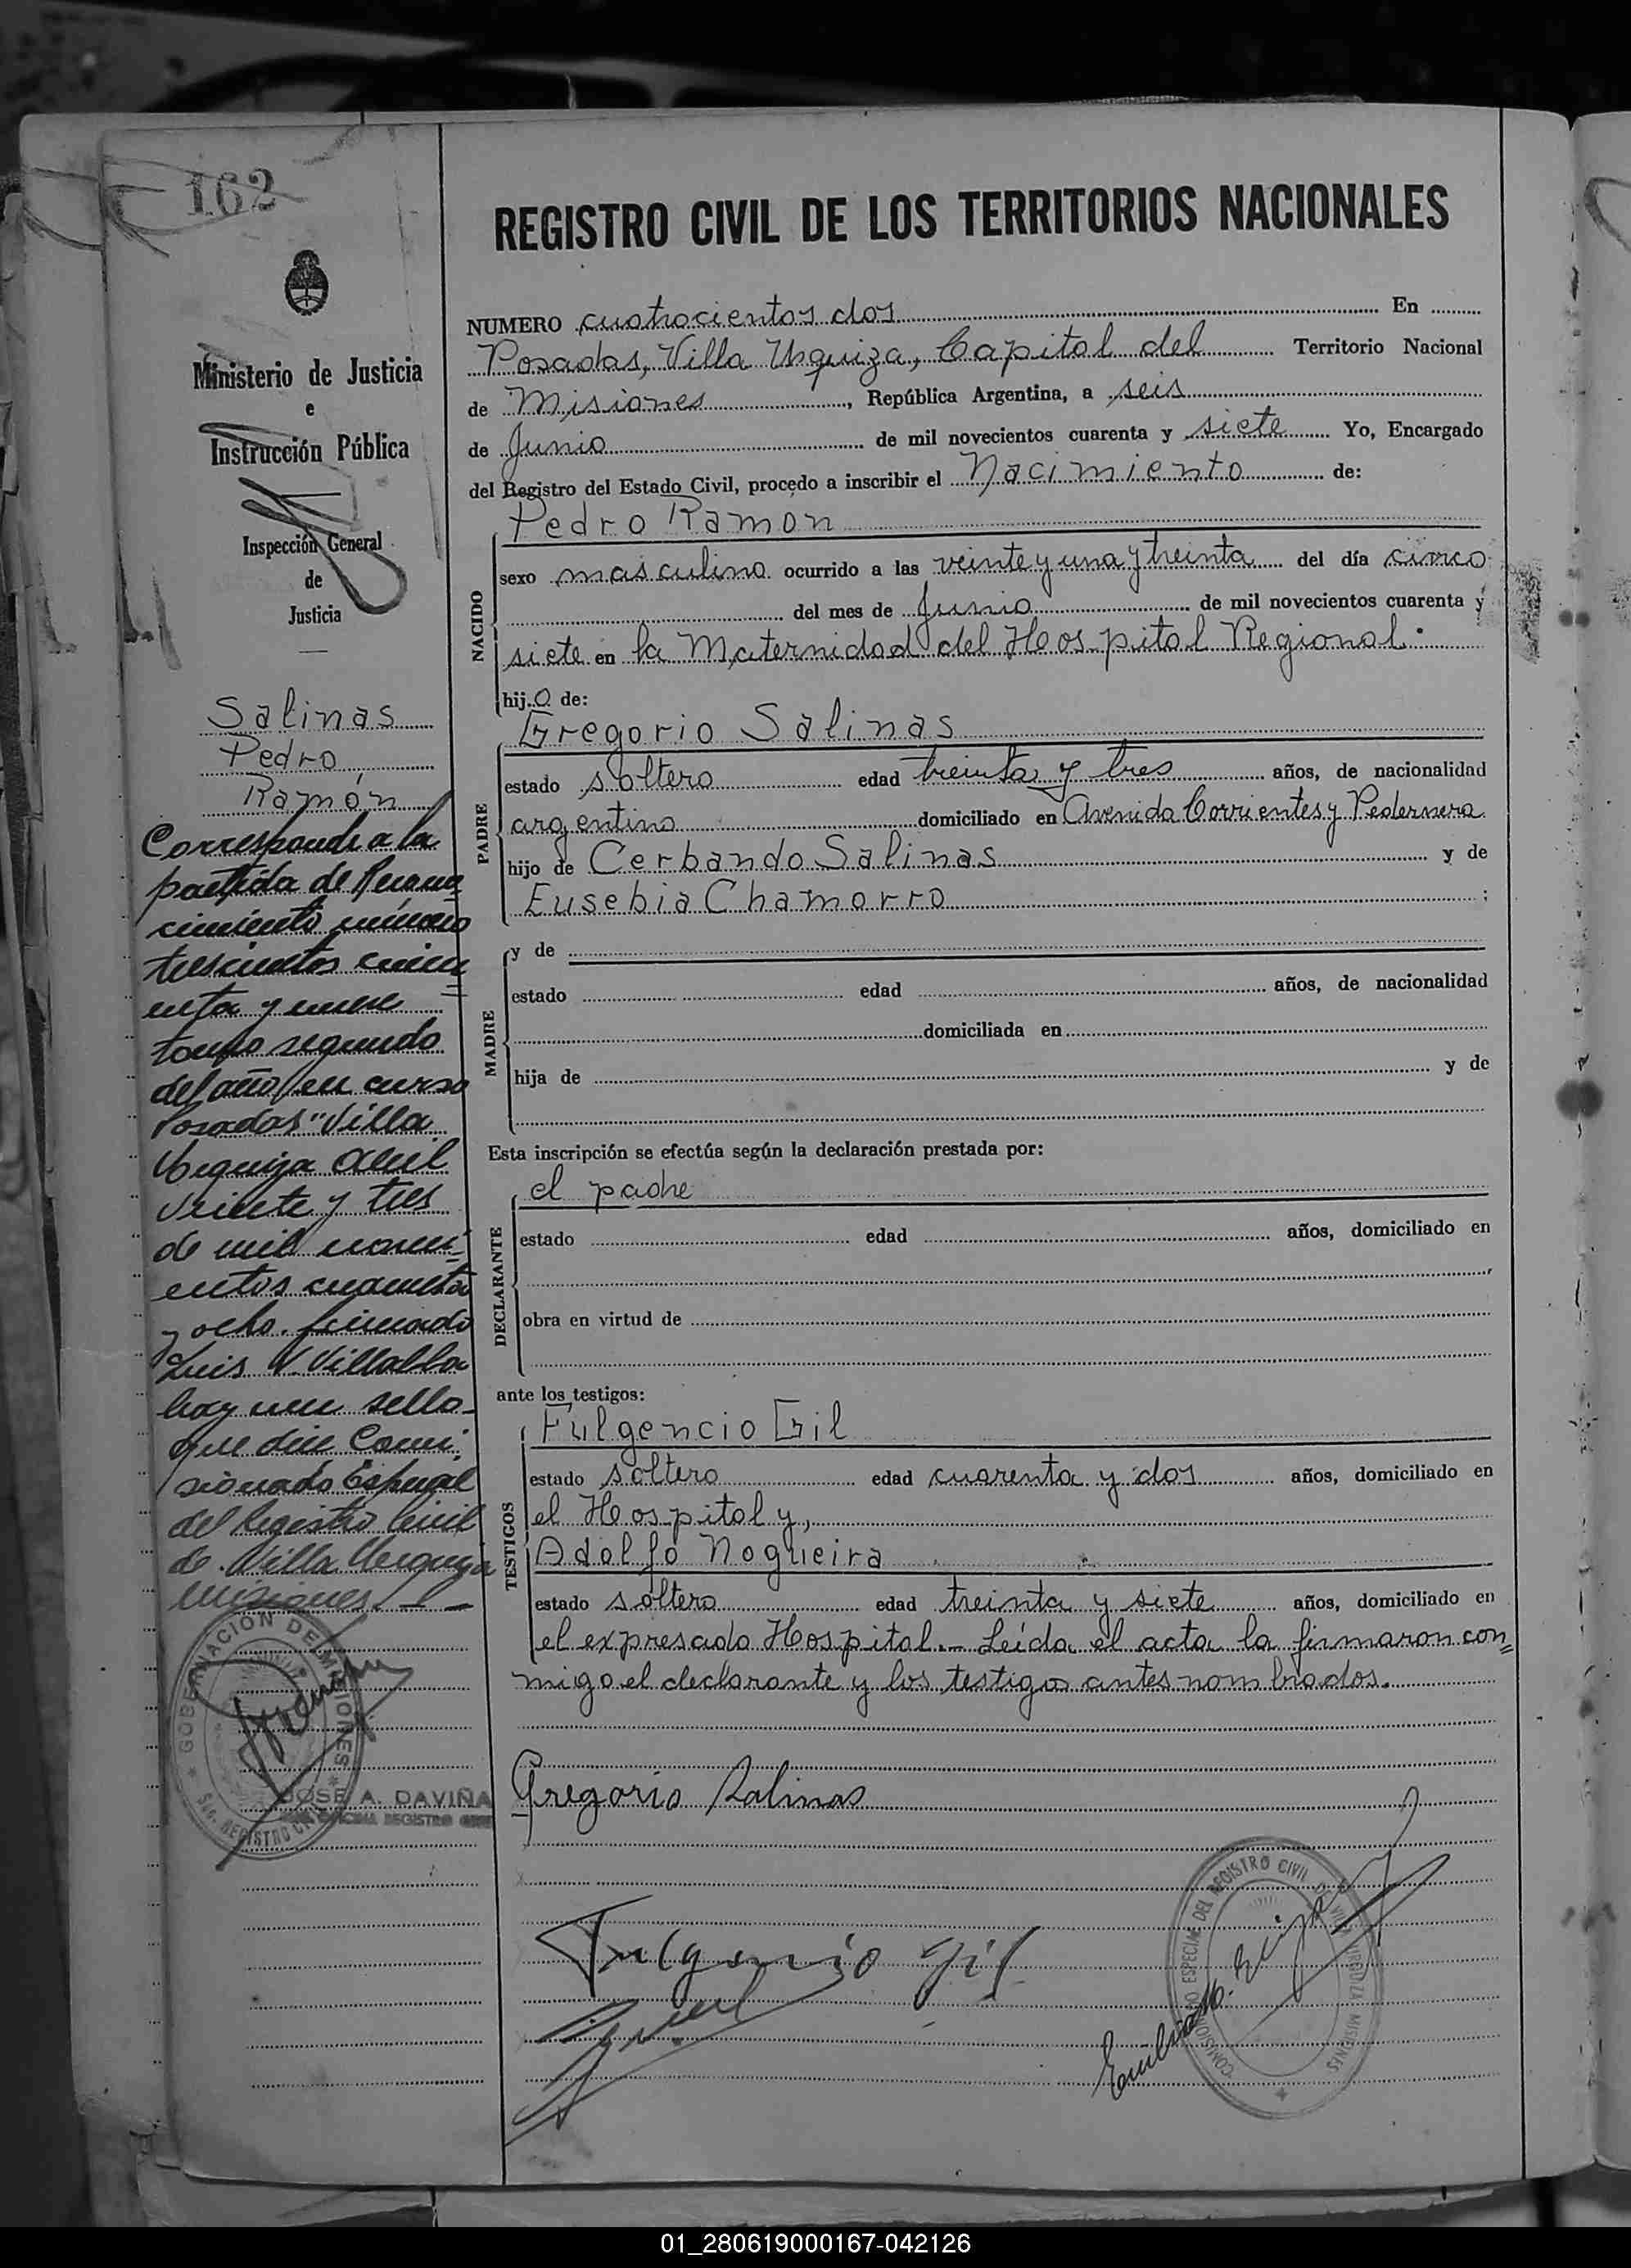 162
Ministerio de Justicia
e
Instrucción Pública
Inspección General
de
Justicia
Salinas
Pedro
Ramón
Corresponde a la
partida de Recono
cimiento número
trescientos cincu
enta y nueve
tomo segundo
del año en curso
Posadas "Villa
Urquiza Abril
Veinte y tres
de mil noveci
entos cuarenta
y ocho. firmado
Luis V. Villalba
hay un sello
que dice Comi
sionado Especial
del Registro Civil
de Villa Urquiza
Misiones.
GOBERNACIÓN DE MISIONES
REGISTRO CIVIL
JOSE A. DAVIÑA
OFICINA REGISTRO CIVIL
REGISTRO CIVIL DE LOS TERRITORIOS NACIONALES
NUMERO cuatrocientos dos En
Posadas, Villa Urquiza, Capital del Territorio Nacional
de Misiones, República Argentina, a seis
de Junio de mil novecientos cuarenta y siete Yo, Encargado
del Registro del Estado Civil, procedo a inscribir el Nacimiento de:
Pedro Ramon
NACIDO
sexo masculino ocurrido a las veinte y una y treinta del día cinco
del mes de Junio de mil novecientos cuarenta y
siete en la Maternidad del Hospital Regional.
hijo de:
Gregorio Salinas
PADRE
estado soltero edad treinta y tres años, de nacionalidad
argentino domiciliado en Avenida Corrientes y Pedernera
hijo de Cerbando Salinas y de
Eusebia Chamorro ;
MADRE
y de
estado edad años, de nacionalidad
domiciliada en
hija de y de
Esta inscripción se efectúa según la declaración prestada por:
el padre
DECLARANTE
estado edad años, domiciliado en
obra en virtud de
ante los testigos:
Fulgencio Gil
TESTIGOS
estado soltero edad cuarenta y dos años, domiciliado en
el Hospital y,
Adolfo Nogueira
estado soltero edad treinta y siete años, domiciliado en
el expresado Hospital.- Leída el acta la firmaron con
migo el declarante y los testigos antes nombrados.
Gregorio Salinas
Fulgensio Gil
COMISIONADO ESPECIAL DEL REGISTRO CIVIL DE VILLA URQUIZA MISIONES
01_280619000167-042126